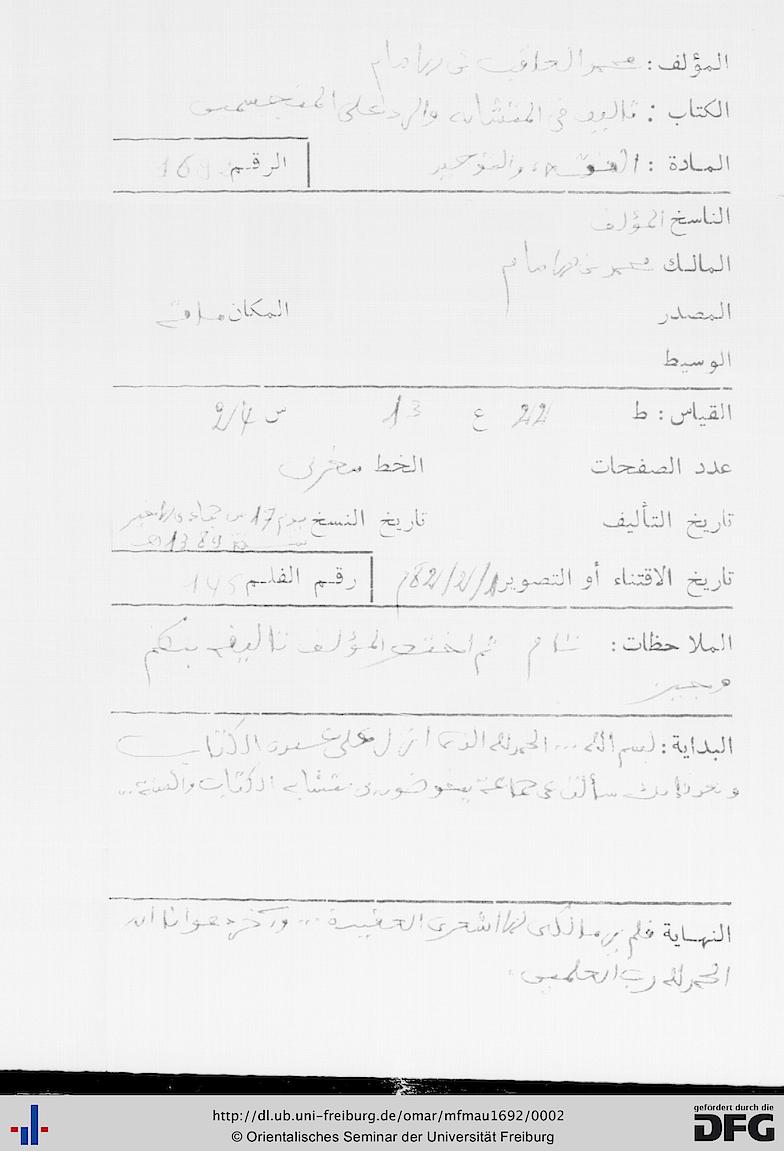 المؤلف: محمد العاقب بن مايام
الكتاب: تأليف في المتشابه والرد على المتجسمين
المادة: والتوحيد الرقم 169
الناسخ المؤلف
المالك محمد بن
المصدر المكان
الوسيط
القياس: ط 22 ع 13 س 2/4
عدد الصفحات الخط مغربي
تاريخ التأليف تاريخ النسخ يوم 17 من جمادى الأخير
1389 هـ
تاريخ الاقتناء أو التصوير 82/2/1م رقم الفلم 145
الملاحظات: تام ثم اختصر المؤلف تأليفه بنظم
وجيز
البداية: بسم الله ... الحمد لله الذي أنزل على عبده الكتاب
وبعد سألني جماعة يخوضون في متشابه الكتاب والسنة ...
النهاية فلم ير مالكي أشعري العقيدة ... وآخر دعوانا أن
الحمد لله رب العلمين.
http://dl.ub.uni-freiburg.de/omar/mfmau1692/0002
© Orientalisches Seminar der Universität Freiburg
gefördert durch die
DFG